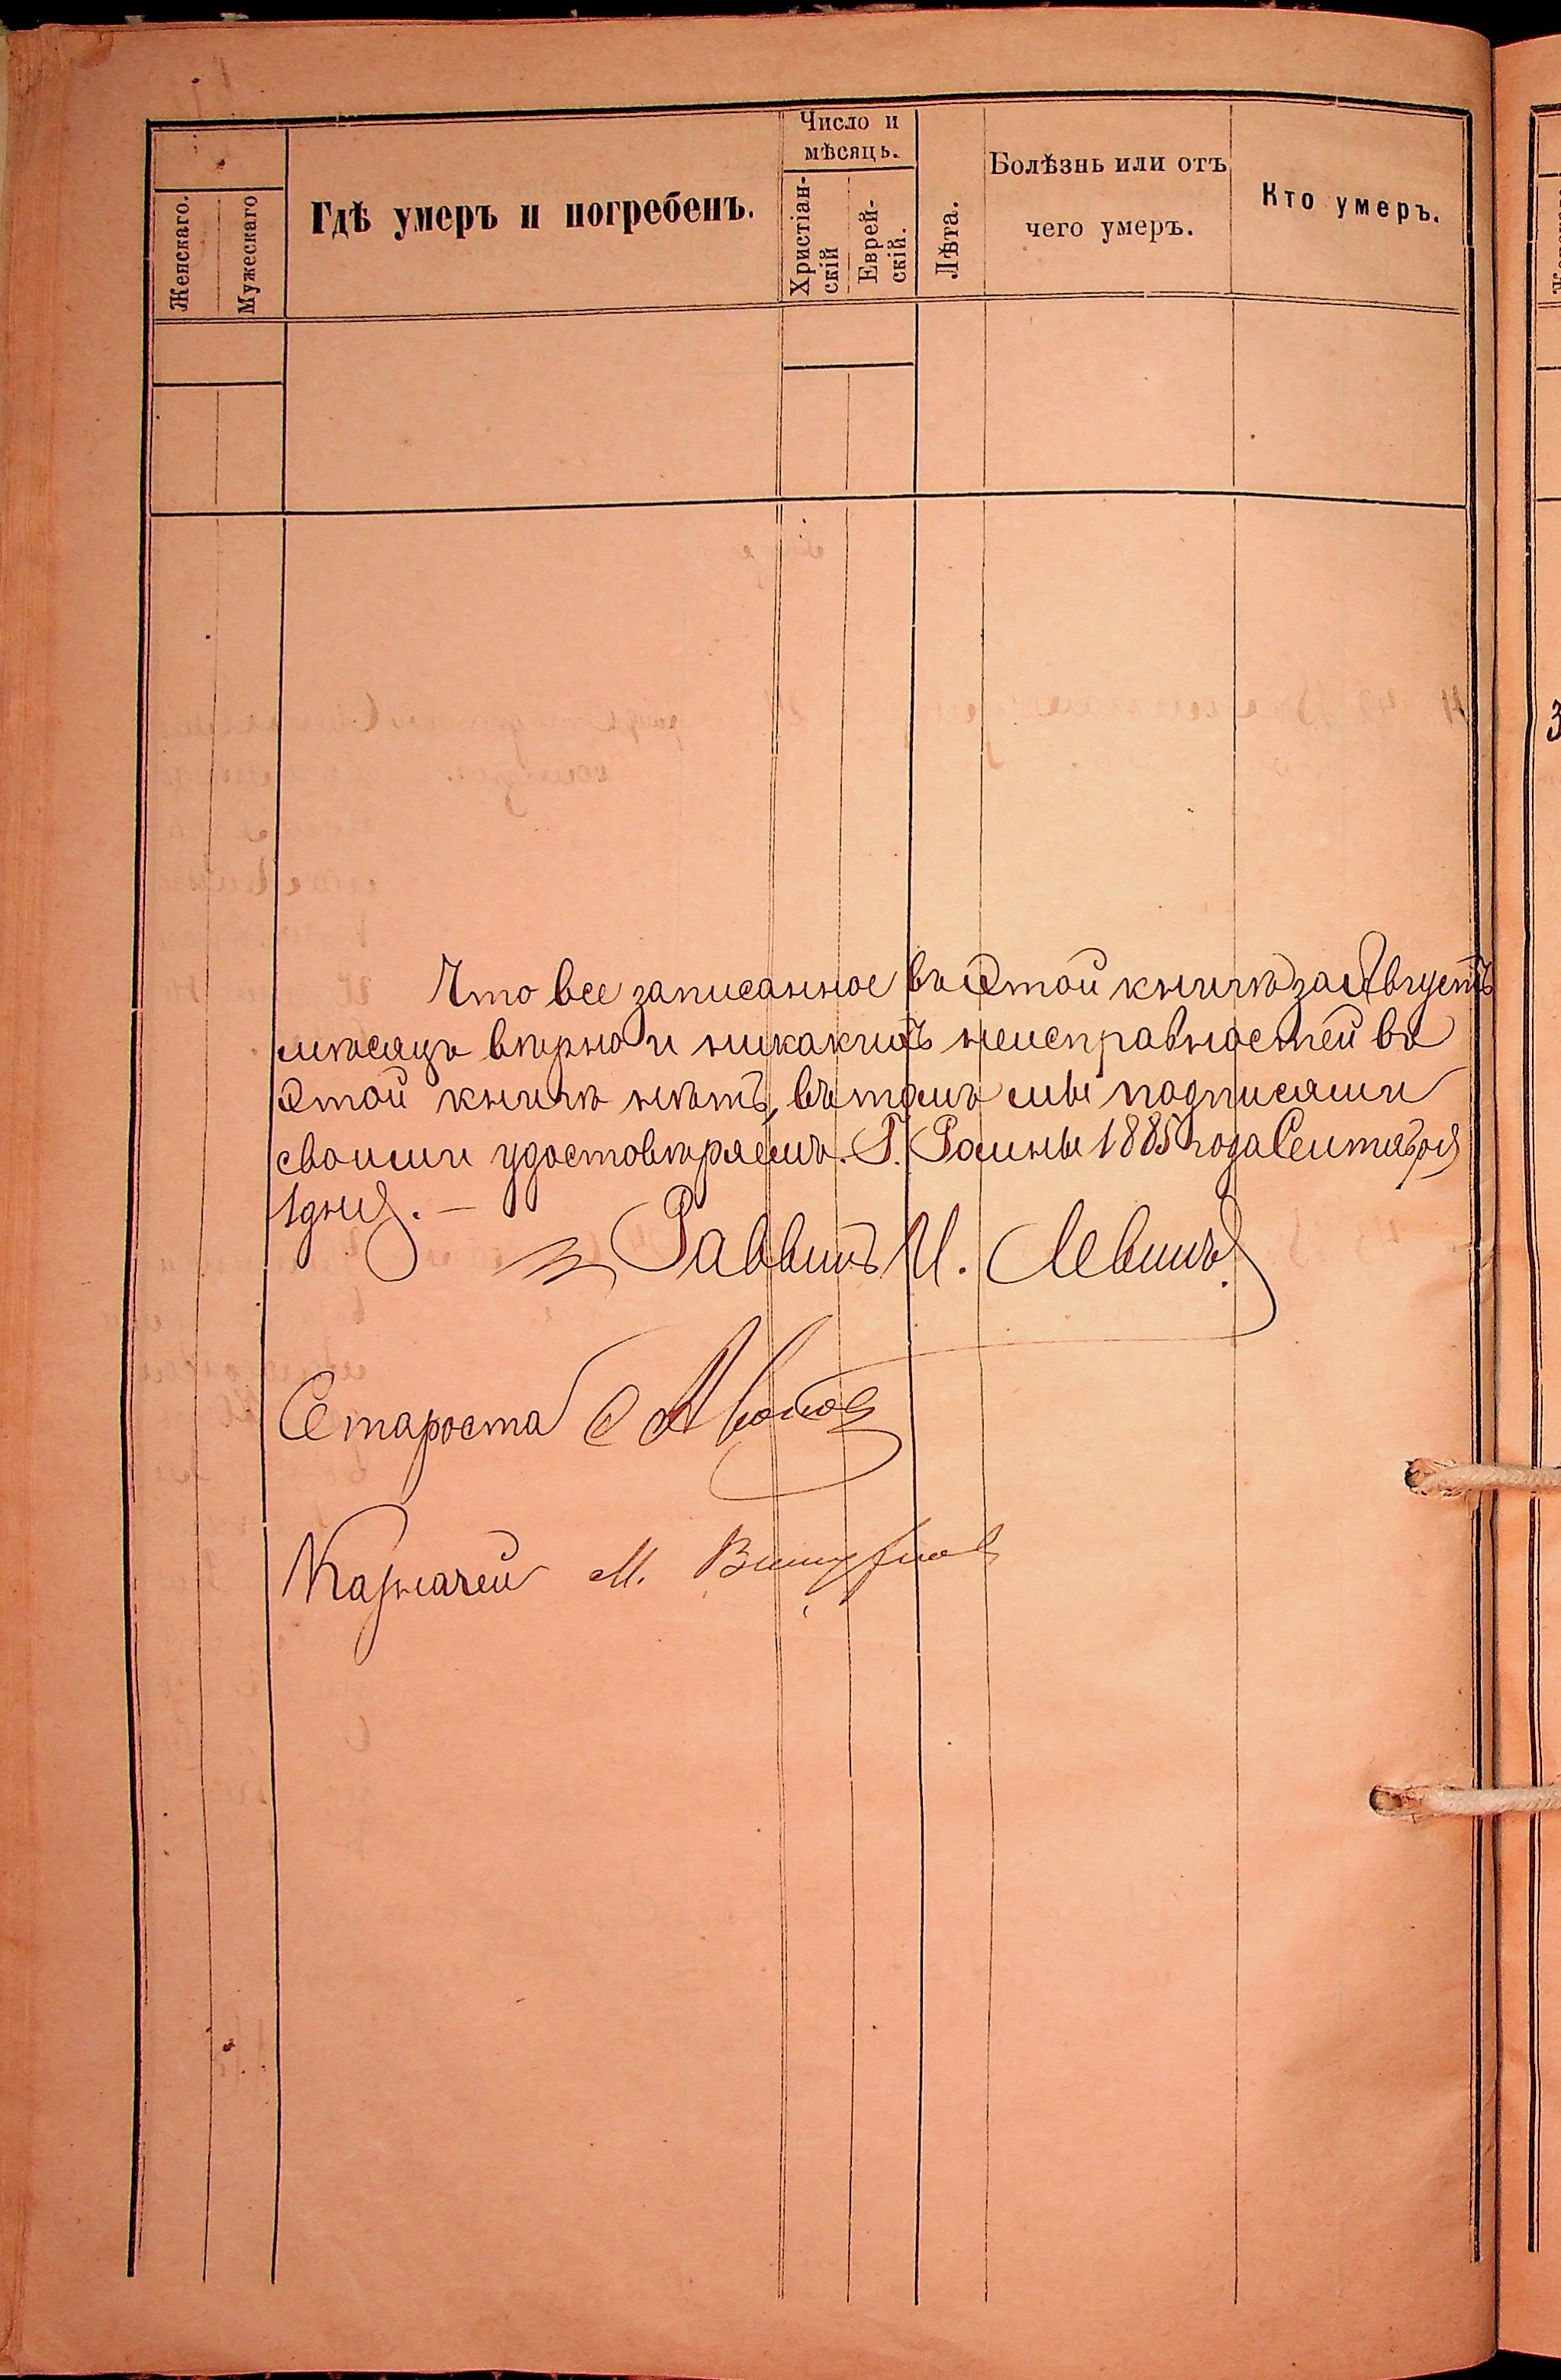 Женскаго.
Мужескаго
Гдѣ умеръ и погребенъ.
Число и
мѣсяцъ.
Христіан-
скій
Еврей-
скій.
Лѣта.
Болѣзнь или отъ
чего умеръ.
Кто умеръ.
Что все записанное въ этой книгѣ за Августъ
мѣсяцъ вѣрно и никакихъ неисправностей въ
этой книгѣ нѣтъ, въ томъ мы подписями
своими удостовѣряемъ. Г. Ромны 1885 года Сентября
1 дня. —
Раввинъ И. Левинъ
Староста
Казначей М.